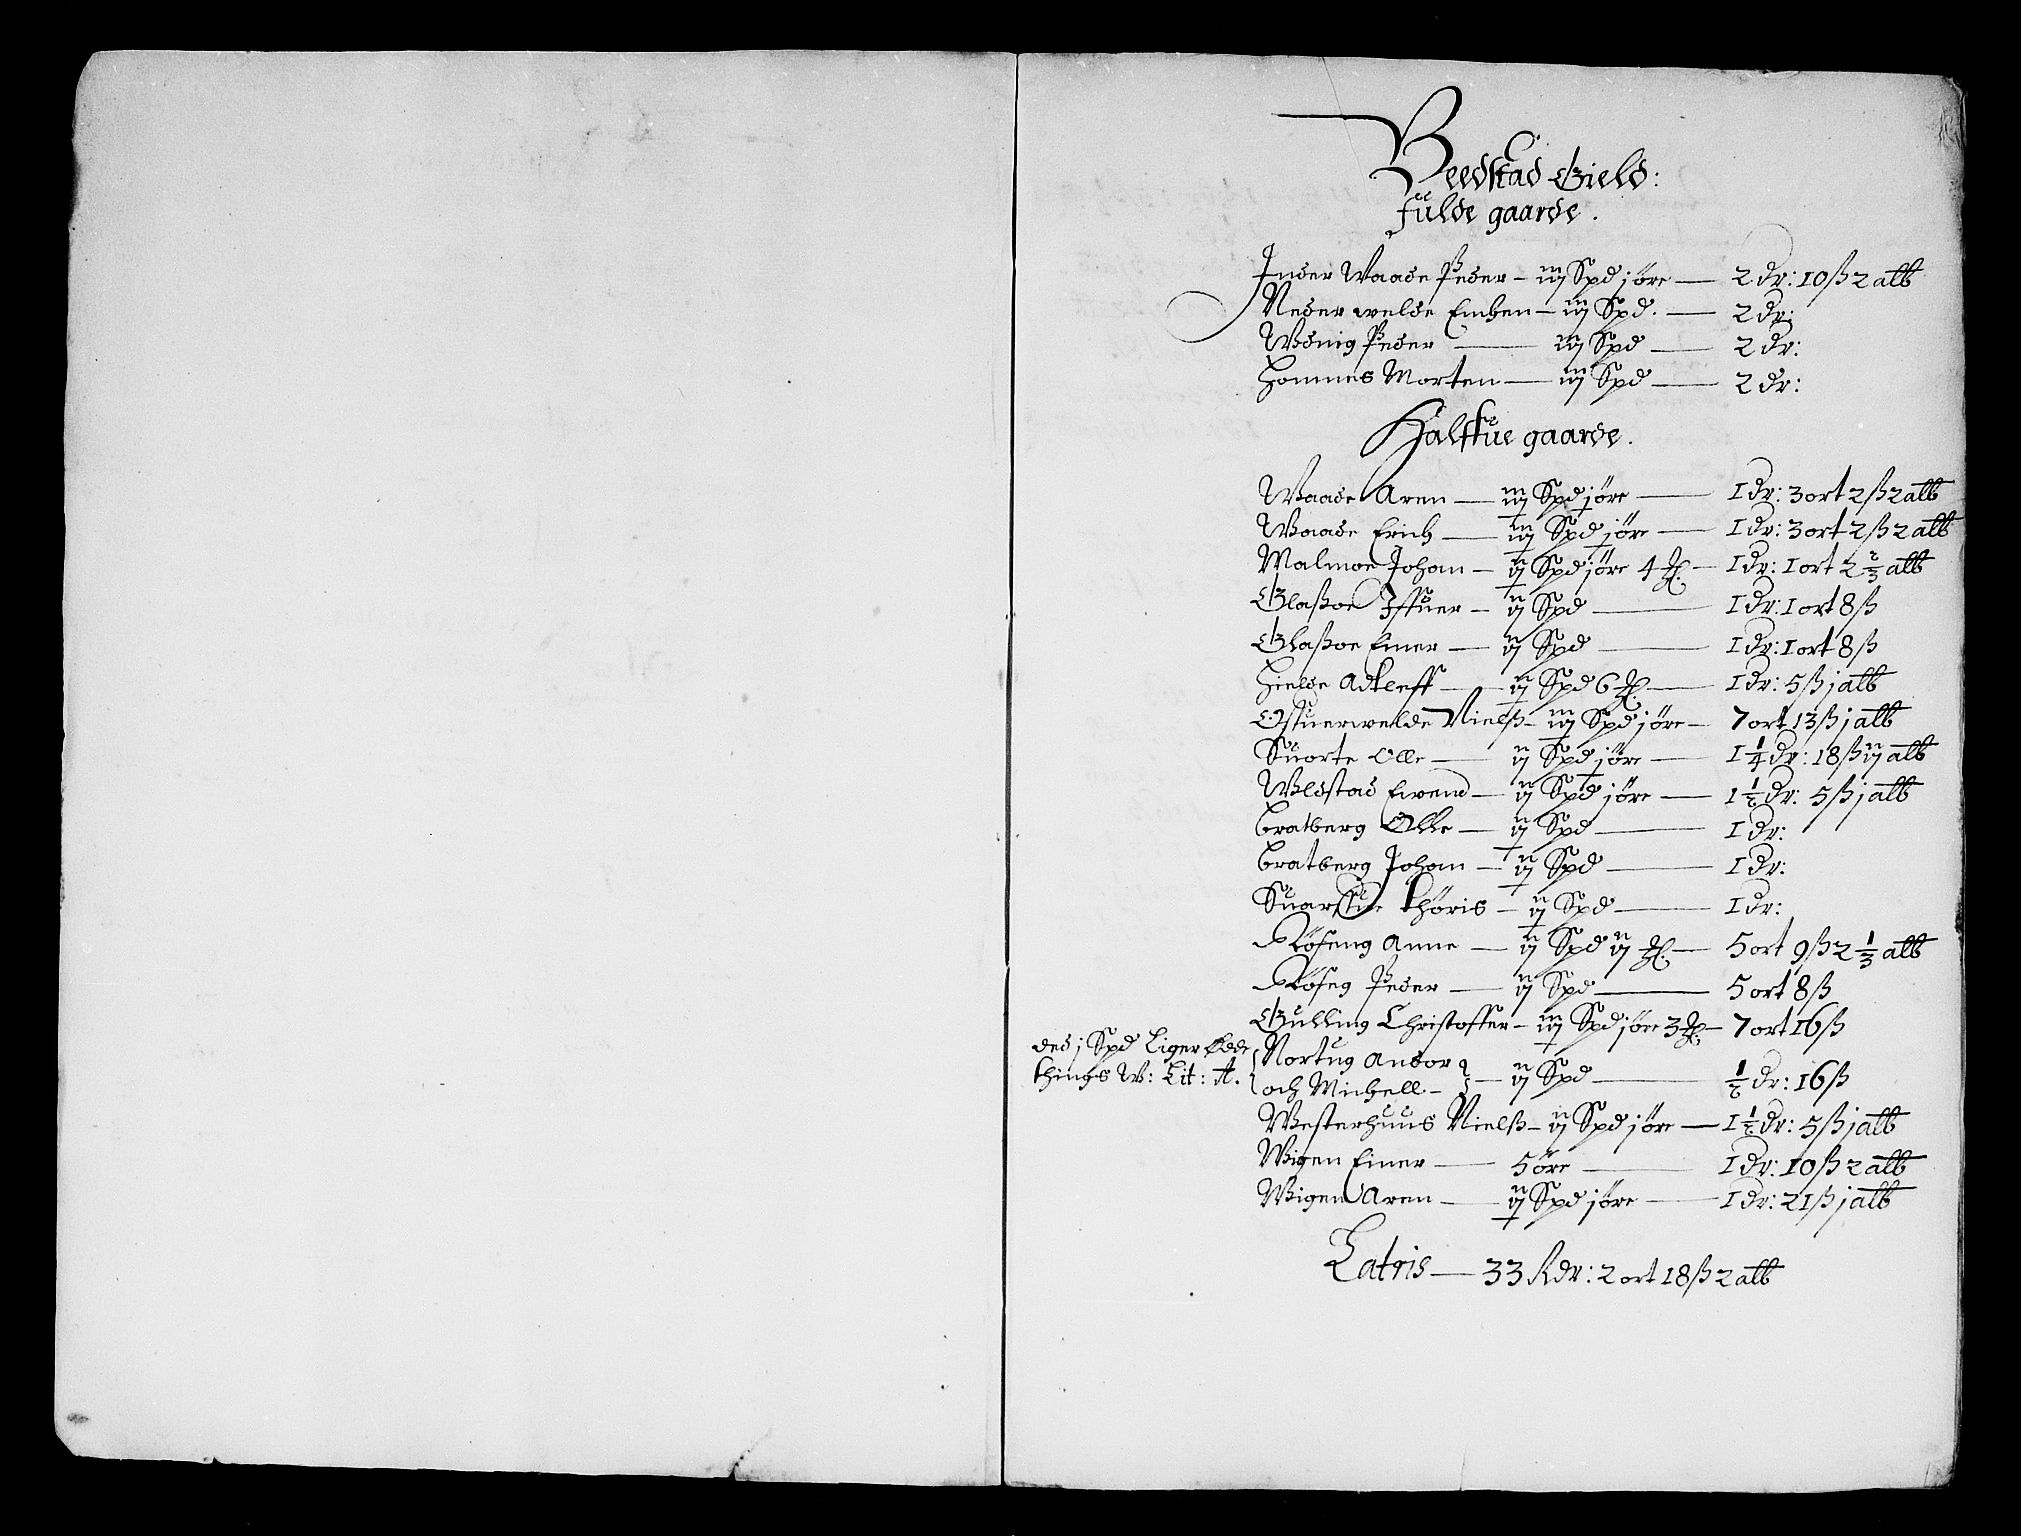 Beedstad Gield:
fulde gaarde.
Inder Waade Peder — iij Spd j øre — 2 dr: 10 ß 2 alb
Neder welde Einhen — iij Spd. — 2 dr:
Wdnig Peder — iij Spd — 2 dr:
Hommes Morten — iij Spd — 2 dr:
Halffue gaarde.
Waade Aren — iij Spd j øre — 1 dr: 3 ort 2 ß 2 alb
Waade Erich — iij Spd j øre — 1 dr: 3 ort 2 ß 2 alb
Malmoe Johan — ij Spd j øre 4 — 1 dr: 1 ort 2 2/3 alb
Glaßoe Iffuer — ij Spd — 1 dr: 1 ort 8 ß
Glaßoe Einer — ij Spd — 1 dr: 1 ort 8 ß
Hielde Adtleff — ij Spd 6 — 1 dr: 5 ß j alb
Østuerwelde Nielß — iij Spd j øre — 7 ort 13 ß j alb
Suorte Olle — ij Spd j øre — 1 1/4 dr: 18 ß ij alb
Wldstad Ewend — ij Spd j øre — 1 1/2 dr: 5 ß j alb
Bratberg Olle — ij Spd — 1 dr:
Bratberg Johan — ij Spd — 1 dr:
Suarffue Thøris — ij Spd — 1 dr:
Røseng Anne — ij Spd ij — 5 ort 9 ß 2 1/3 alb
Røseg Peder — ij Spd — 5 ort 8 ß
Gulling Christoffer — iij Spd j øre 3 — 7 ort 16 ß
ded j Spd Liger Øde
things W: Lit: A.
Nortug Andor
och Michell — ij Spd — 1/2 dr: 16 ß
Westerhuus Nielß — ij Spd j øre — 1 1/2 dr: 5 ß j alb
Wigen Einer — 5 øre — 1 dr: 10 ß 2 alb
Wigen Aren — ij Spd j øre — 1 dr: 21 ß j alb
Latris — 33 Rdr: 2 ort 18 ß 2 alb